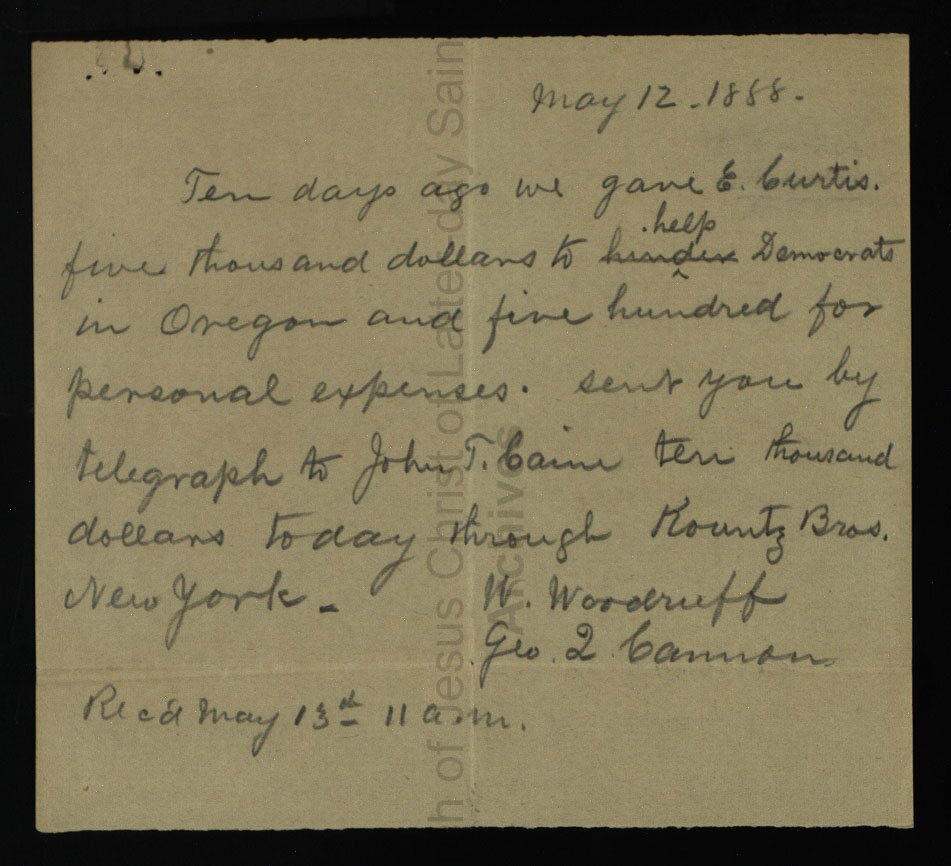 May 12-1888-
Ten days ago we gave E. Curtis.
help
five thousand dollars to hinder Democrats
in Oregon and five hundred for
personal expenses. sent you by
telegraph to John T. Caine ten thousand
dollars today through Kountz Bros.
New York-
W. Woodruff
Geo. Q Cannon
Rec'd May 13th 11 a.m.
h of Jesus Christ of Latter-day Sain
Archives